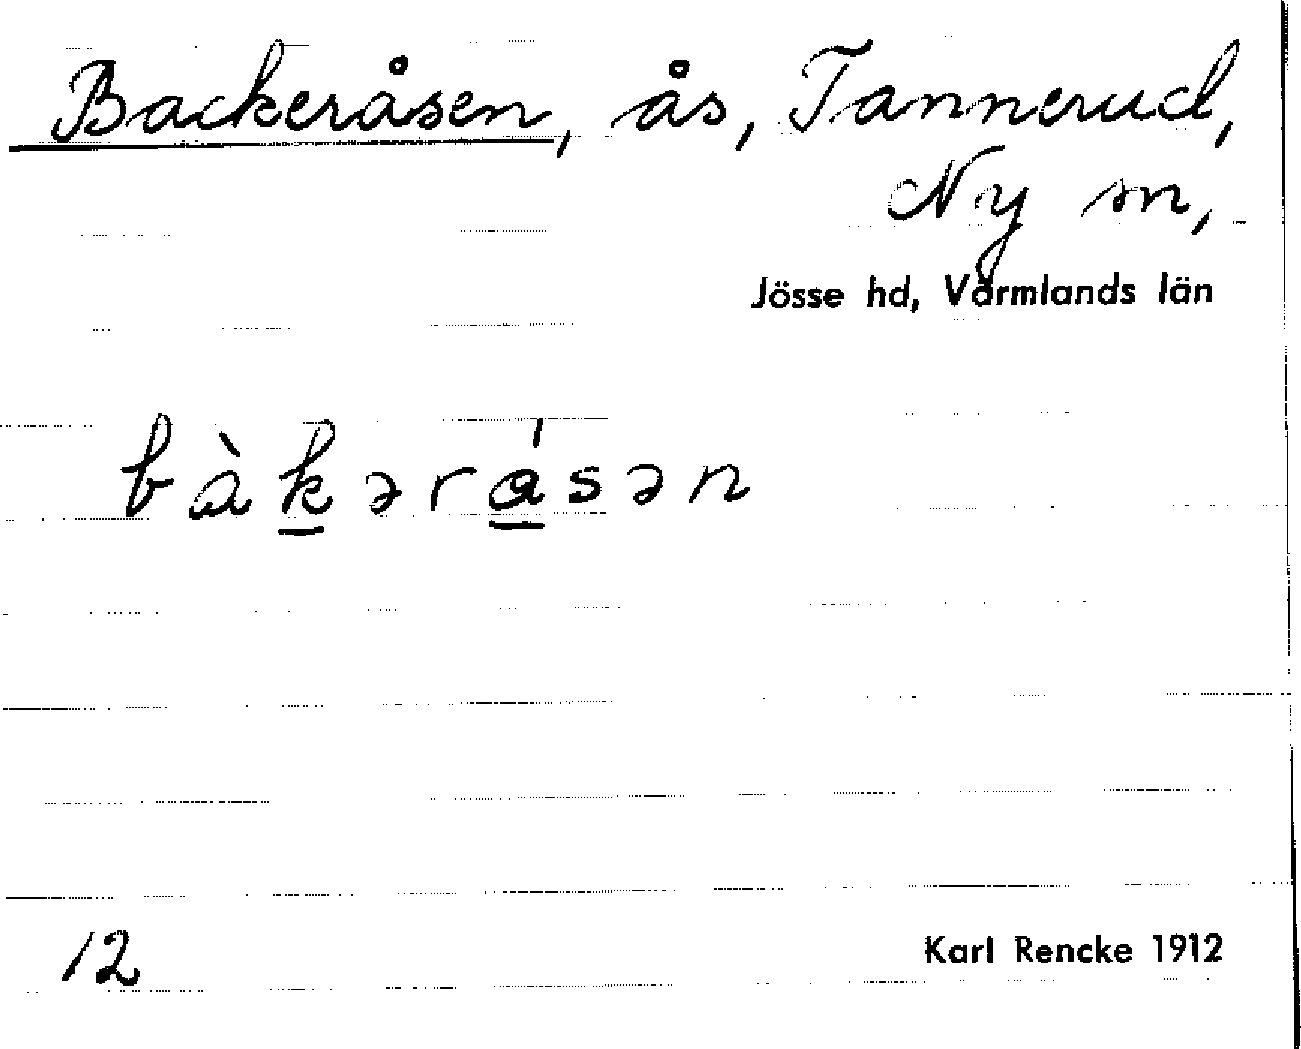 Backeråsen, ås, Tannerud,
Ny sn,
Jösse hd, Värmlands län
bàkərásən
12
Karl Rencke 1912